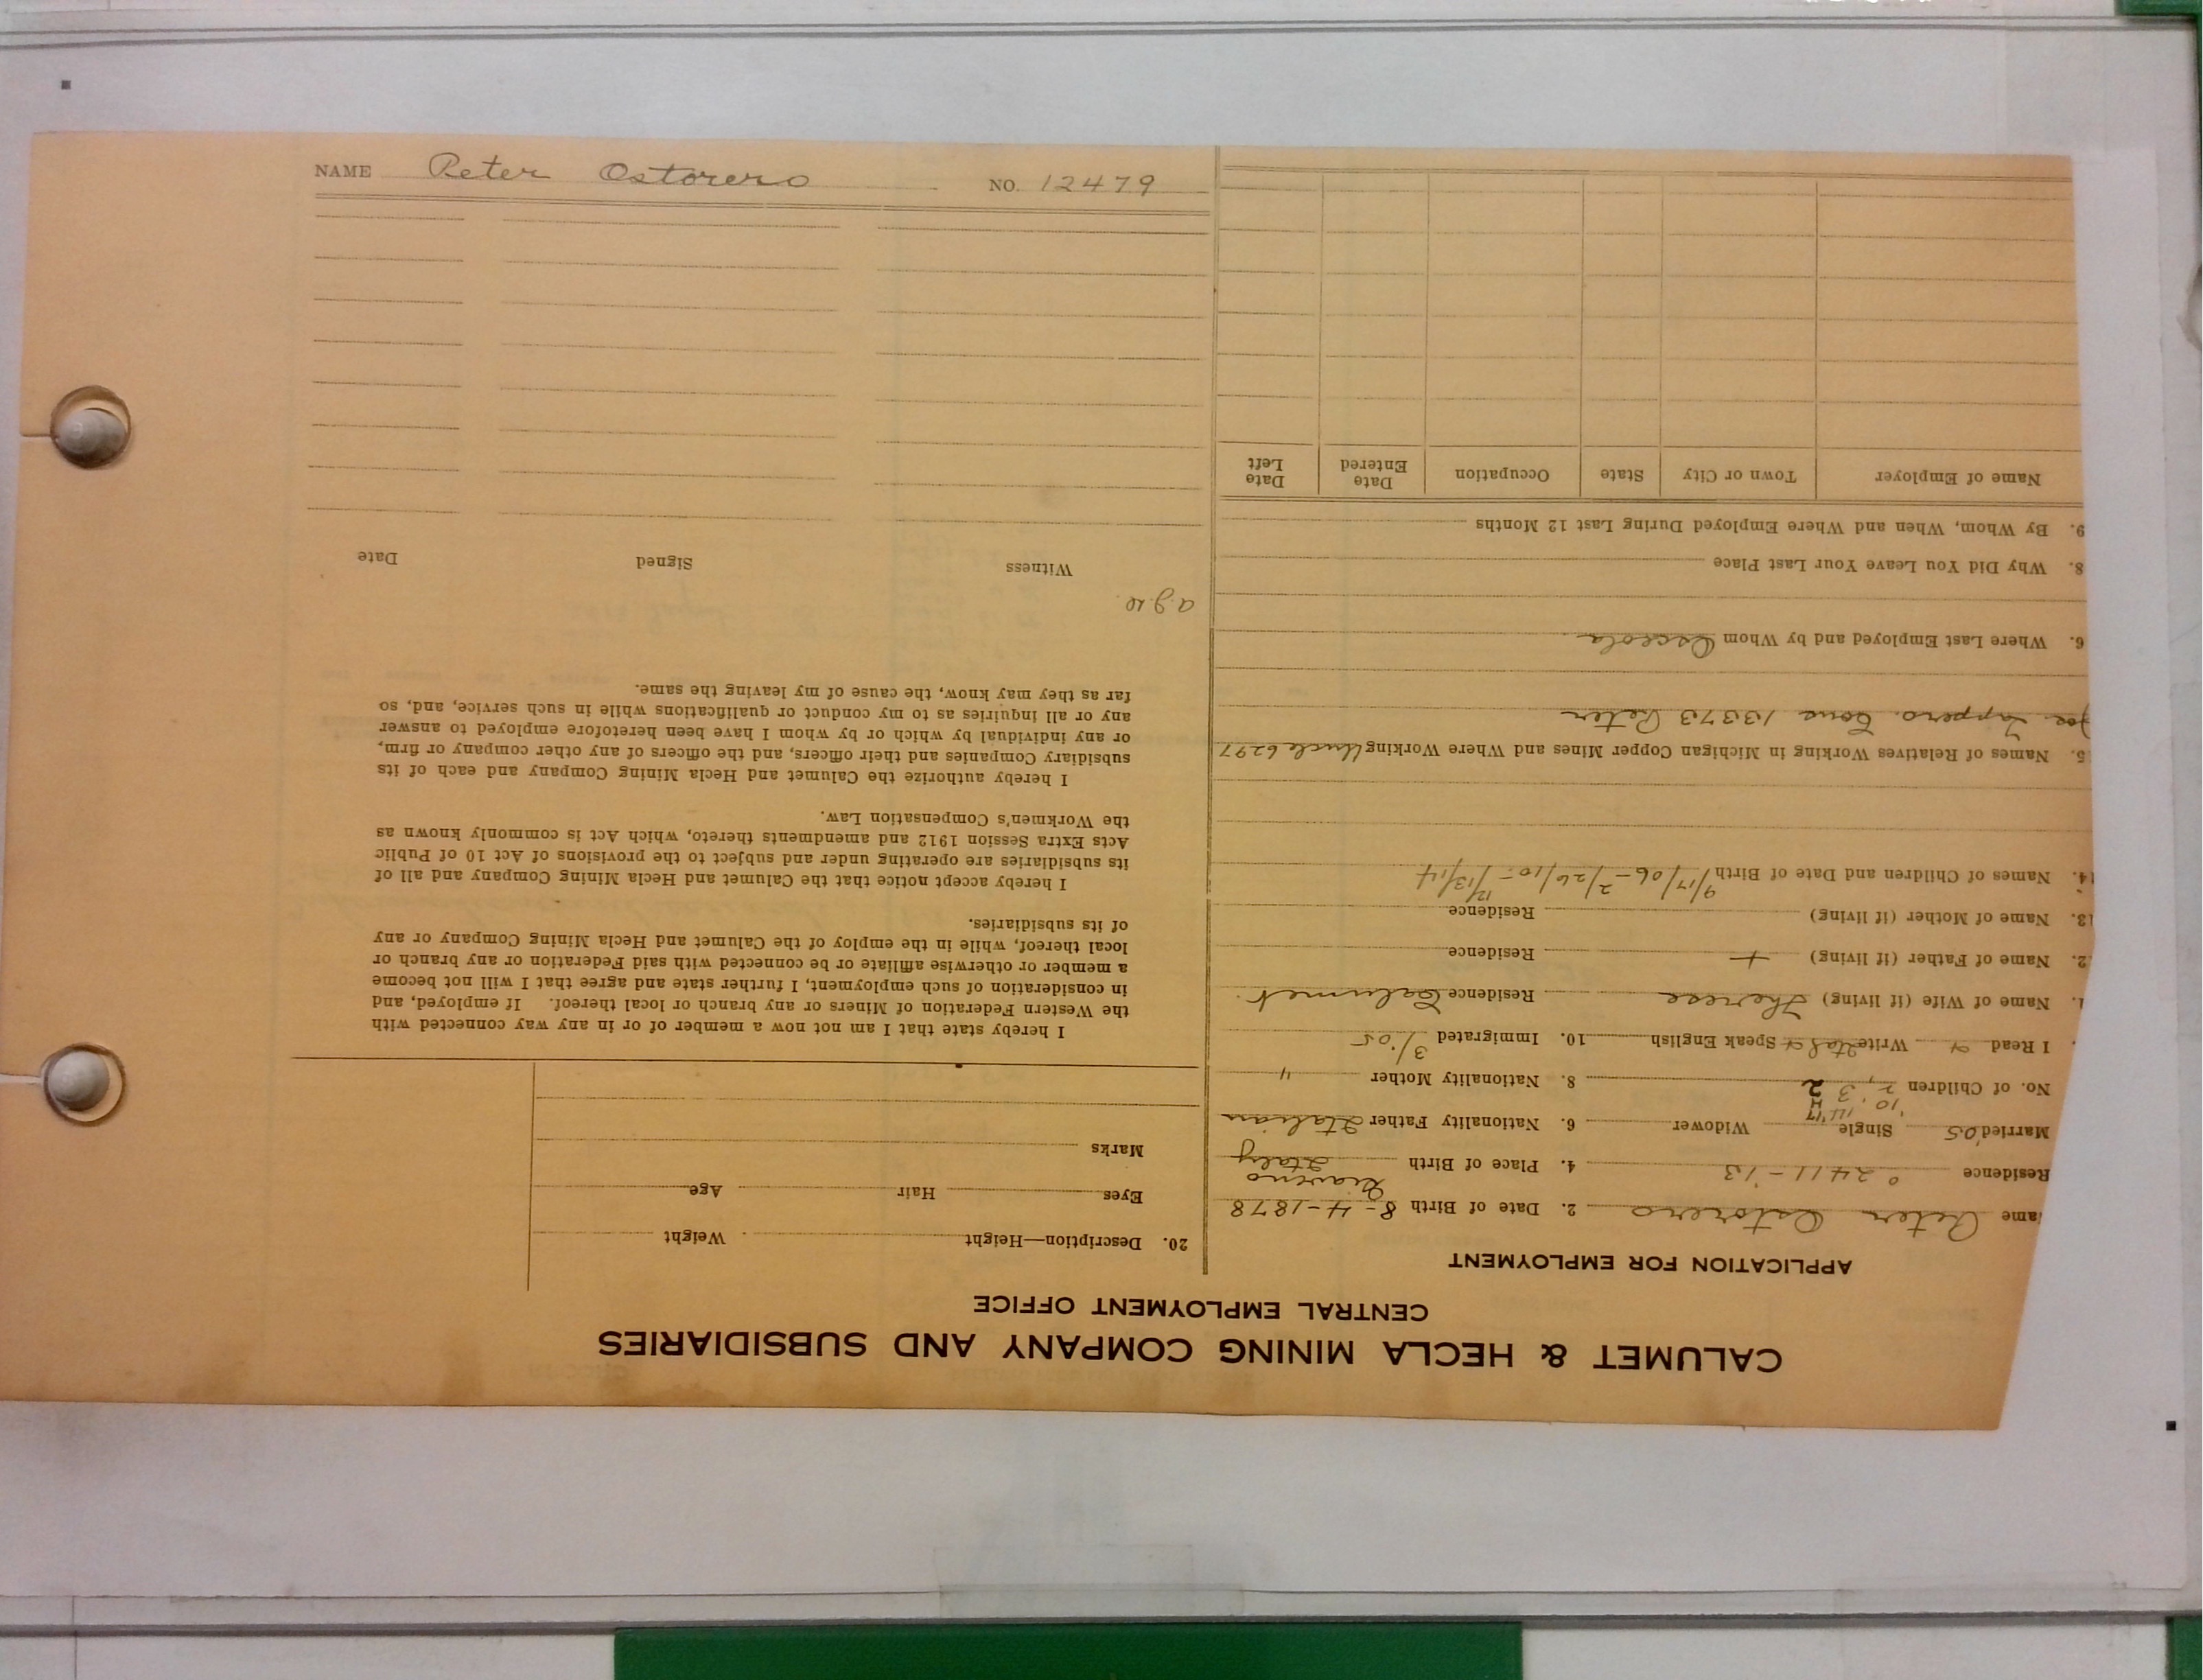 NAME Peter Ostorero NO. 12479
CALUMET & HECLA MINING COMPANY AND SUBSIDIARIES
CENTRAL EMPLOYMENT OFFICE
APPLICATION FOR EMPLOYMENT
ame Peter Ostorero 2. Date of Birth 8-4-1878
Residence 02411-'13 4. Place of Birth Giaveno Italy
Married '05 Single Widower 6. Nationality Father Italian
'10 '14 '17
No. of Children 2, 3 2 8. Nationality Mother "
I Read Write Ital Speak English 10. Immigrated 3/'05
1. Name of Wife (if living) Therese Residence Calumet
2. Name of Father (if living) + Residence
13. Name of Mother (if living) Residence
14. Names of Children and Date of Birth 9/17/06 - 2/26/10 - 12/13/14
5. Names of Relatives Working in Michigan Copper Mines and Where Working Uncle 6297
Joe Tappero. Cous 13373 Peter
6. Where Last Employed and by Whom Osceola
8. Why Did You Leave Your Last Place
9. By Whom, When and Where Employed During Last 12 Months
Name of Employer Town or City State Occupation Date Entered Date Left
20. Description—Height Weight
Eyes Hair Age
Marks
I hereby state that I am not now a member of or in any way connected with
the Western Federation of Miners or any branch or local thereof. If employed, and
in consideration of such employment, I further state and agree that I will not become
a member or otherwise affiliate or be connected with said Federation or any branch or
local thereof, while in the employ of the Calumet and Hecla Mining Company or any
of its subsidiaries.
I hereby accept notice that the Calumet and Hecla Mining Company and all of
its subsidiaries are operating under and subject to the provisions of Act 10 of Public
Acts Extra Session 1912 and amendments thereto, which Act is commonly known as
the Workmen's Compensation Law.
I hereby authorize the Calumet and Hecla Mining Company and each of its
subsidiary Companies and their officers, and the officers of any other company or firm,
or any individual by which or by whom I have been heretofore employed to answer
any or all inquiries as to my conduct or qualifications while in such service, and, so
far as they may know, the cause of my leaving the same.
Witness Signed Date